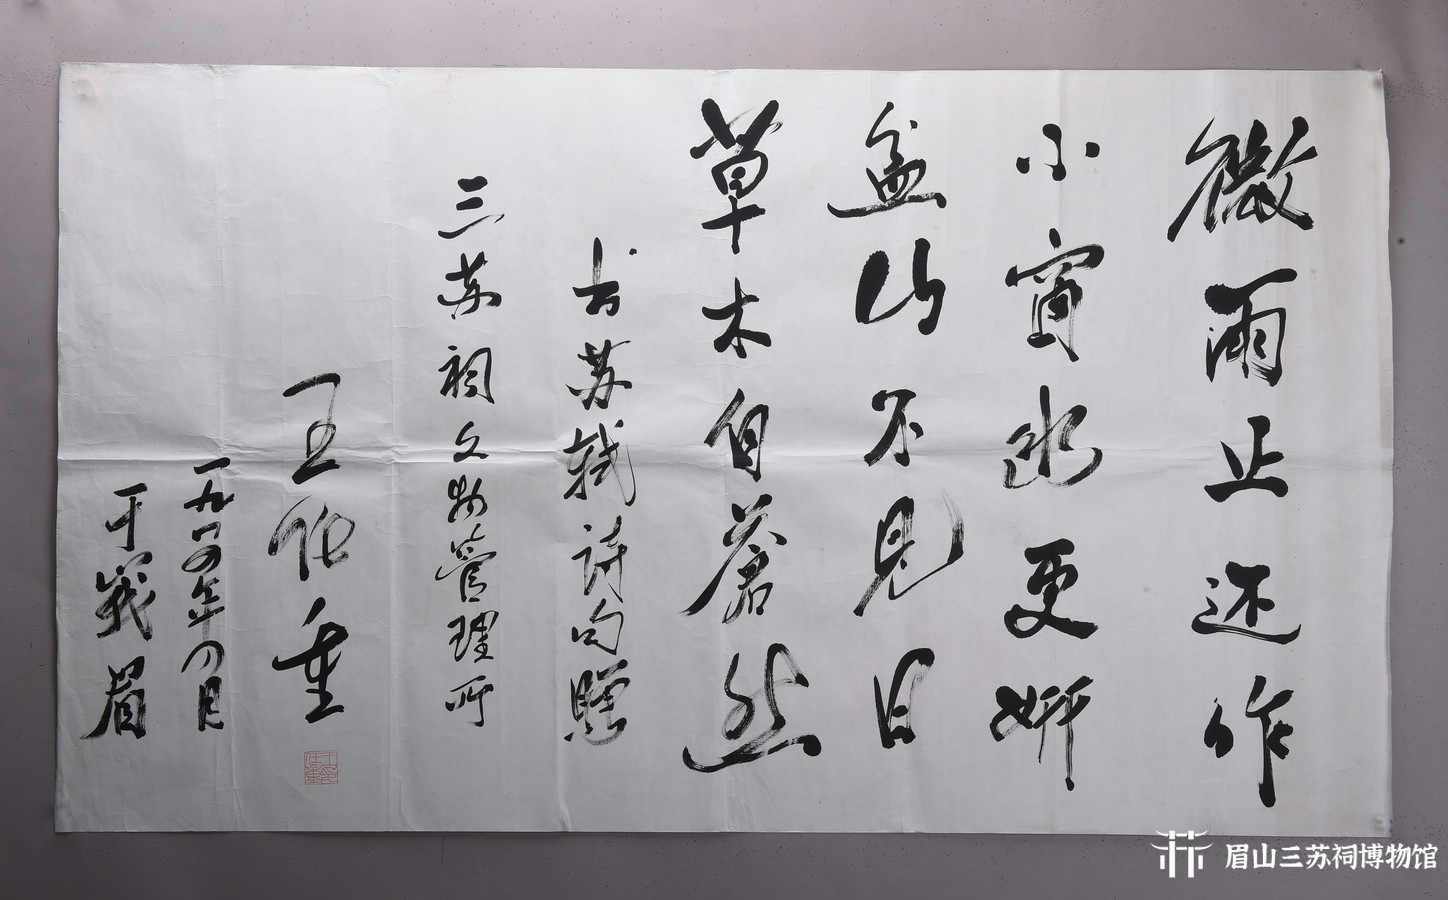 微雨止还作
小窗幽更妍
盆山不見日
草木自蒼然
书苏轼詩句贈
三苏祠文物管理所
王任重
一九八四年八月
于峨眉
眉山三苏祠博物馆